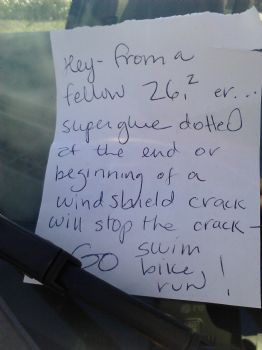 Hey- from a
fellow 26.2 er...
superglue dotted
at the end or
beginning of a
windshield crack
will stop the crack-
Go swim
bike,
run!